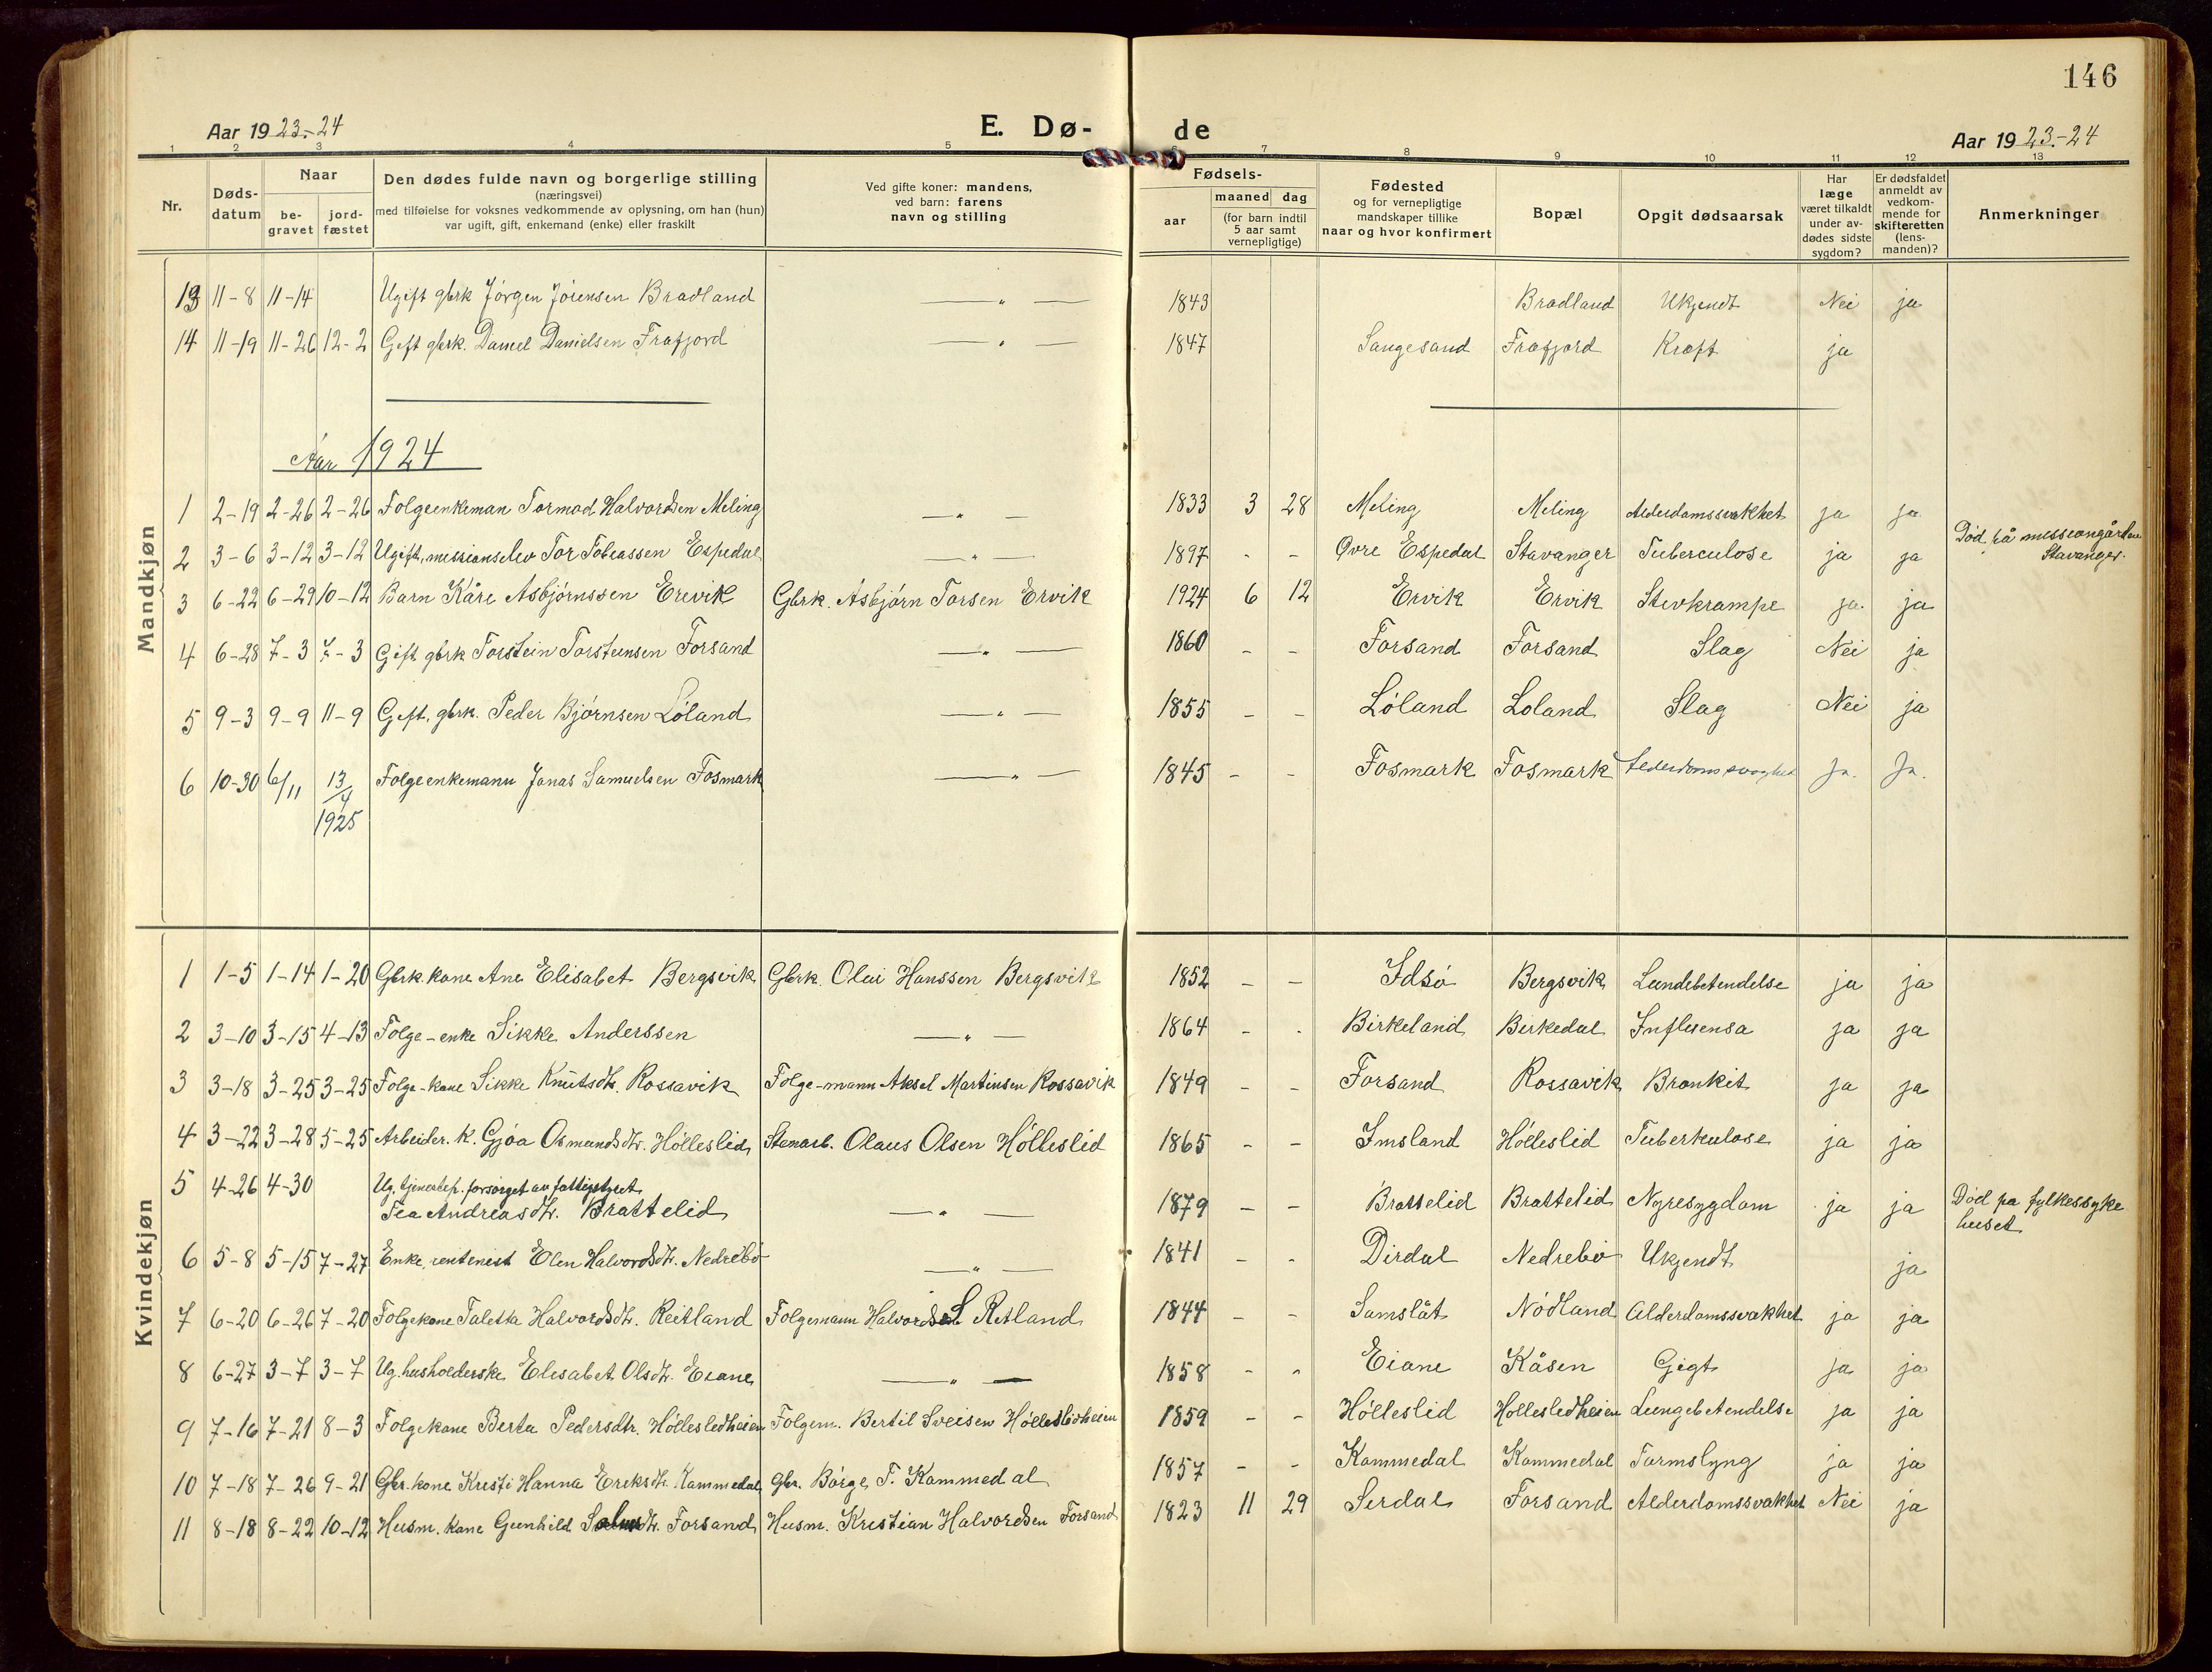 146
Aar 1923.-24
E. Dø-
de
Aar 1923.-24
1 2 3 4 5 6 7 8 9 10 11 12 13
Nr.
Døds-
datum
Naar
be-
gravet
jord-
fæstet
Den dødes fulde navn og borgerlige stilling
(næringsvei)
med tilføielse for voksnes vedkommende av oplysning, om han (hun)
var ugift, gift, enkemand (enke) eller fraskilt
Ved gifte koner: mandens,
ved barn: farens
navn og stilling
Fødsels-
aar
maaned dag
(for barn indtil
5 aar samt
vernepligtige)
Fødested
og for vernepligtige
mandskaper tillike
naar og hvor konfirmert
Bopæl
Opgit dødsaarsak
Har
læge
været tilkaldt
under av-
dødes sidste
sygdom?
Er dødsfaldet
anmeldt av
vedkom-
mende for
skifteretten
(lens-
manden)?
Anmerkninger
Mandkjøn
13 11-8 11-14 Ugift gbrk Jørgen Jørensen Bradland —"— 1843 Bradland Ukjendt Nei ja
14 11-19 11-26 12-2 Gift gbrk. Daniel Danielsen Frafjord —"— 1847 Saugesand Frafjord Kræft ja
Aar 1924
1 2-19 2-26 2-26 Folgeenkeman Tormod Halvordsen Meling —"— 1833 3 28 Meling Meling Alderdomssvakhet ja ja
2 3-6 3-12 3-12 Ugift, missionselev Tor Tobiassen Espedal —"— 1897 - - Øvre Espedal Stavanger Tuberculose ja ja Død på
Stavanger.
3 6-22 6-29 10-12 Barn Kåre Asbjørnssen Erevik Gbrk. Asbjørn Torsen Ervik 1924 6 12 Ervik Ervik Stivkrampe ja. ja
4 6-28 7-3 7-3 Gift gbrk Torstein Torsteinsen Forsand —"— 1860 - - Forsand Forsand Slag Nei ja
5 9-3 9-9 11-9 Gift, gbrk. Peder Bjørnsen Løland —"— 1855 - - Løland Loland Slag Nei ja
6 10-30 6/11 13/4 Folgeenkemann Jonas Samuelsen Fosmark —"— 1845 - - Fosmark Fosmark Ja. Ja.
1925
Kvindekjøn
1 1-5 1-14 1-20 Gbrk. kone Ane Elisabet Bergsvik Gbrk. Olai Hanssen Bergsvik 1852 - - Idsø Bergsvik Lundebetendelse ja ja
2 3-10 3-15 4-13 Folge-enke Sikke Anderssen —"— 1864 - - Birkeland Birkedal Influensa ja ja
3 3-18 3-25 3-25 Folge-kone Sikke Knutsdtr. Rossavik Folge-mann Aksel Martinsen Rossavik 1849 - - Forsand Rossavik Bronkit ja ja
4 3-22 3-28 5-25 Arbeider. k. Gjøa Osmundsdtr. Hølleslid Stenarb. Olaus Olsen Hølleslid 1865 - - Imsland Hølleslid Tuberkulose ja ja
5 4-26 4-30 Ug. tjenestep. forsørget av fattigstyret
Tea Andreasdtr. Brattelid —"— 1879 - - Brattelid Brattelid Nyresygdom ja ja Død pa fylkessyke
huset
6 5-8 5-15 7-27 Enke, rentenist Elen Halvordsdtr. Nedrebø —"— 1841 - - Dirdal Nedrebø Ukjendt ja
7 6-20 6-26 7-20 Folgekone Taletta Halvordsdtr. Reitland Folgemann Halvord S Retland 1844 - - Samslåt Nødland Alderdomssvakhet ja ja
8 6-27 3-7 3-7 Ug. husholderske Elisabet Olsdtr. Eiane —"— 1858 - - Eiane Kåsen Gigt ja ja
9 7-16 7-21 8-3 Folgekone Berta Pedersdtr. Hølleslidheien Folgem. Bertil Sveisen Hølleslidheien 1859 - - Hølleslid Hølleslidheien Lungebetendelse ja ja
10 7-18 7-26 9-21 Gbr. kone Kristi Hanna Eriksdtr. Kammedal Gbr. Børge T. Kammedal 1857 - - Kammedal Kammedal Tarmslyng ja ja
11 8-18 8-22 10-12 Husm. kone Gunhild Forsand Husm. Kristian Halvordsen Forsand 1823 11 29 Serdal Forsand Alderdomssvakhet Nei ja